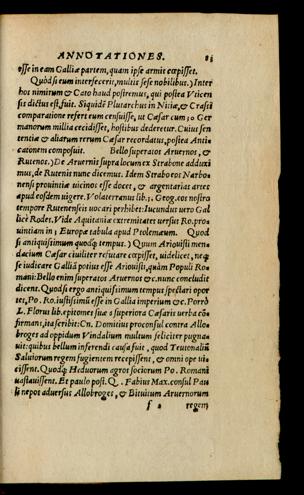 ANNOTATIONES. 81
esse in eam Galliæ partem, quam ipse armis cœpisset.
Quòd si eum interfecerit, multis sese nobilibus.) Inter
hos nimirum & Cato haud postremus, qui postea Vticen
sis dictus est, fuit. Siquidē Plutarchus in Niciæ, & Crassi
comparatione refert eum censuisse, ut Cæsar cum 30 Ger
manorum millia cecidisset, hostibus dederetur. Cuius sen
tentiæ & aliarum rerum Cæsar recordatus, postea Anti
catonem composuit. Bello superatos Aruernos, &
Rutenos.) De Aruernis supra locum ex Strabone adduxi
mus, de Rutenis nunc dicemus. Idem Strabo eos Narbo
nensi prouinciæ uicinos esse docet, & argentarias artes
apud eosdem uigere. Volaterranus lib.3. Geog. eos nostra
tempore Rutenenseis uocari perhibet: Iucundus uero Gal
licè Rodes. Vide Aquitaniæ extremitates uersus Ro. pro
uintiam in 3 Europæ tabula apud Ptolemæum. Quod
si antiquissimum quodq́ tempus.) Quum Ariouisti men
dacium Cæsar ciuiliter refutare cœpisset, uidelicet, neq́
se iudicare Galliā potius esse Ariouisti, quàm Populi Ro
mani: Bello enim superatos Aruernos &c. nunc concludit
dicens. Quod si ergo antiquissimum tempus spectari opor
tet, Po. Ro. iustissimū esse in Gallia imperium &c. Porrò
L. Florus lib. epitomes suæ 3 superiora Cæsaris uerba cō
firmans, ita scribit: Cn. Domitius proconsul contra Allo
broges ad oppidum Vindalium multum feliciter pugna
uit: quibus bellum inferendi causa fuit, quod Teutomaliū
Saluiorum regem fugientem recepissent, & omni ope iu
uissent. Quodq́ Heduorum agros sociorum Po. Romani
uastauissent. Et paulo post. Q. Fabius Max. consul Pau
li nepos aduersus Allobroges, & Bituitum Aruernorum
f 2 regem